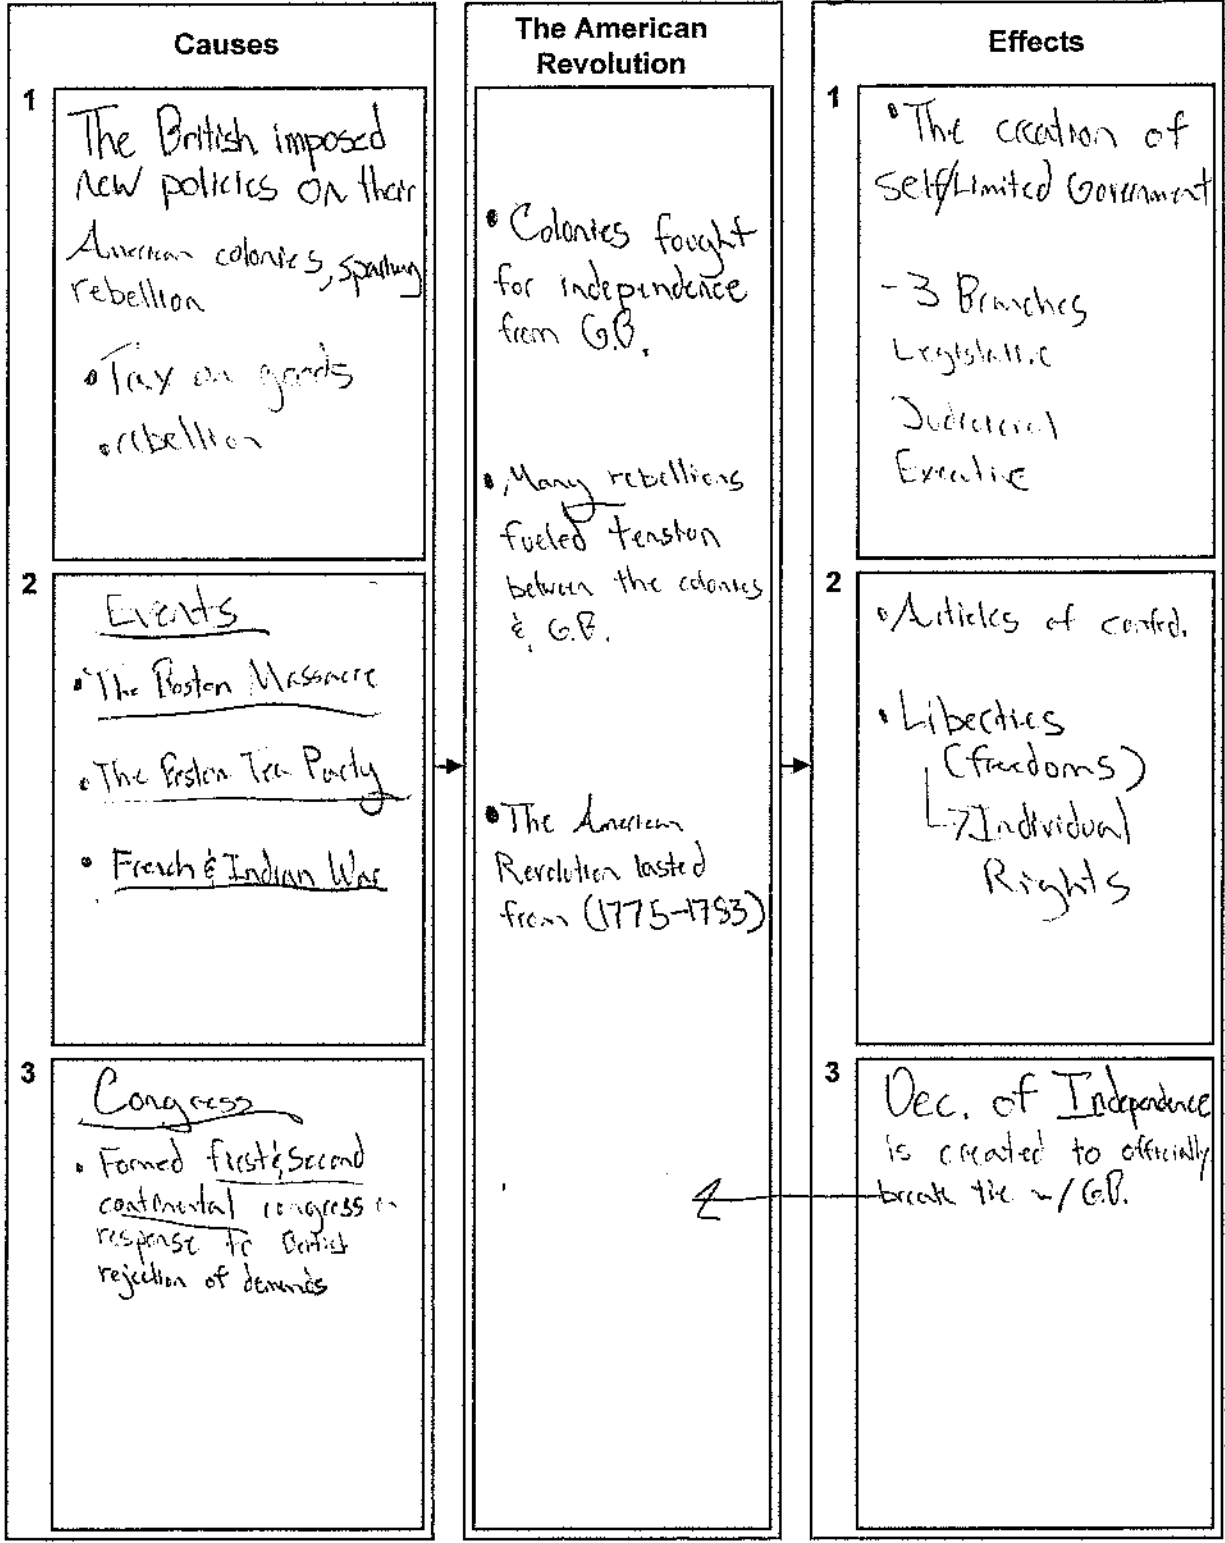 Causes
1
The British imposed
new policies on their
American colonies, sparking
rebellion
• Tax on goods
• rebellion
2
Events
• The Boston Massacre
• The Boston Tea Party
• French & Indian War
3
Congress
• Formed first & Second
continental congress in
response to British
rejection of demands
The American
Revolution
• Colonies fought
for independence
from G.B.
• Many rebellions
fueled tension
between the colonies
& G.B.
• The American
Revolution lasted
from (1775-1783)
Effects
1
• The creation of
self/Limited Government
- 3 Branches
Legislative
Judicial
Executive
2
• Articles of confed.
• Liberties
(freedoms)
↳ Individual
Rights
3
Dec. of Independence
is created to officially
break tie w/ G.B.